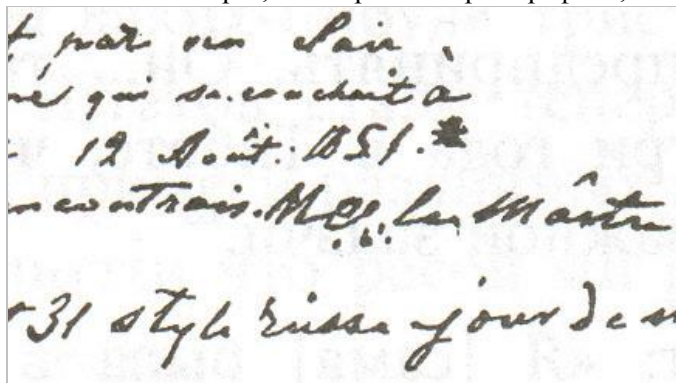 par un clair
ne qui se couchait à
12 Août. 1851.*
ncontrais. M le Maître
31 style russe jour de m